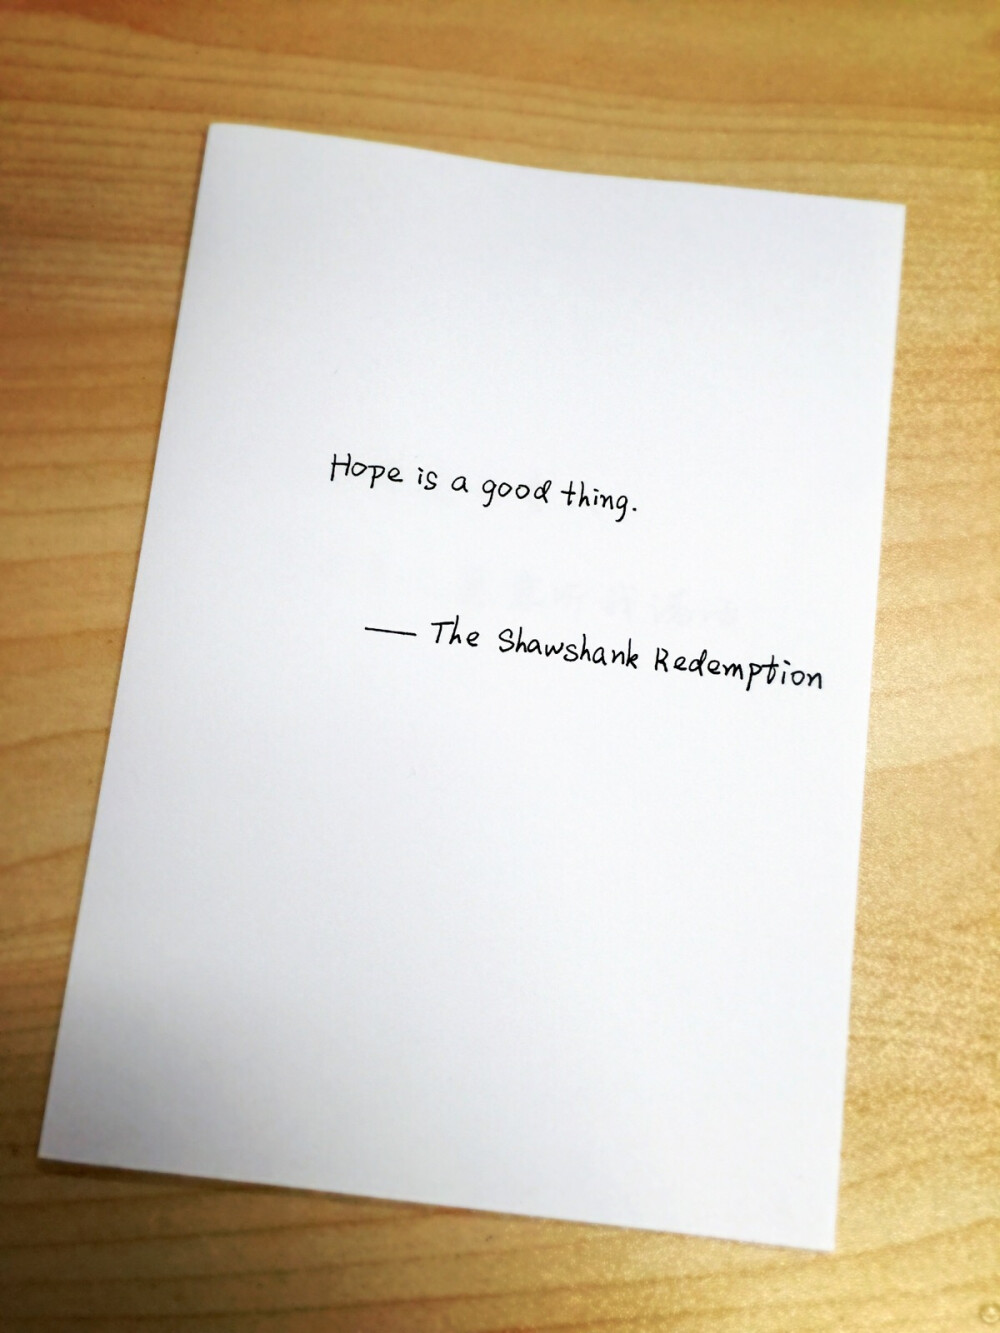 Hope is a good thing.
—— The Shawshank Redemption